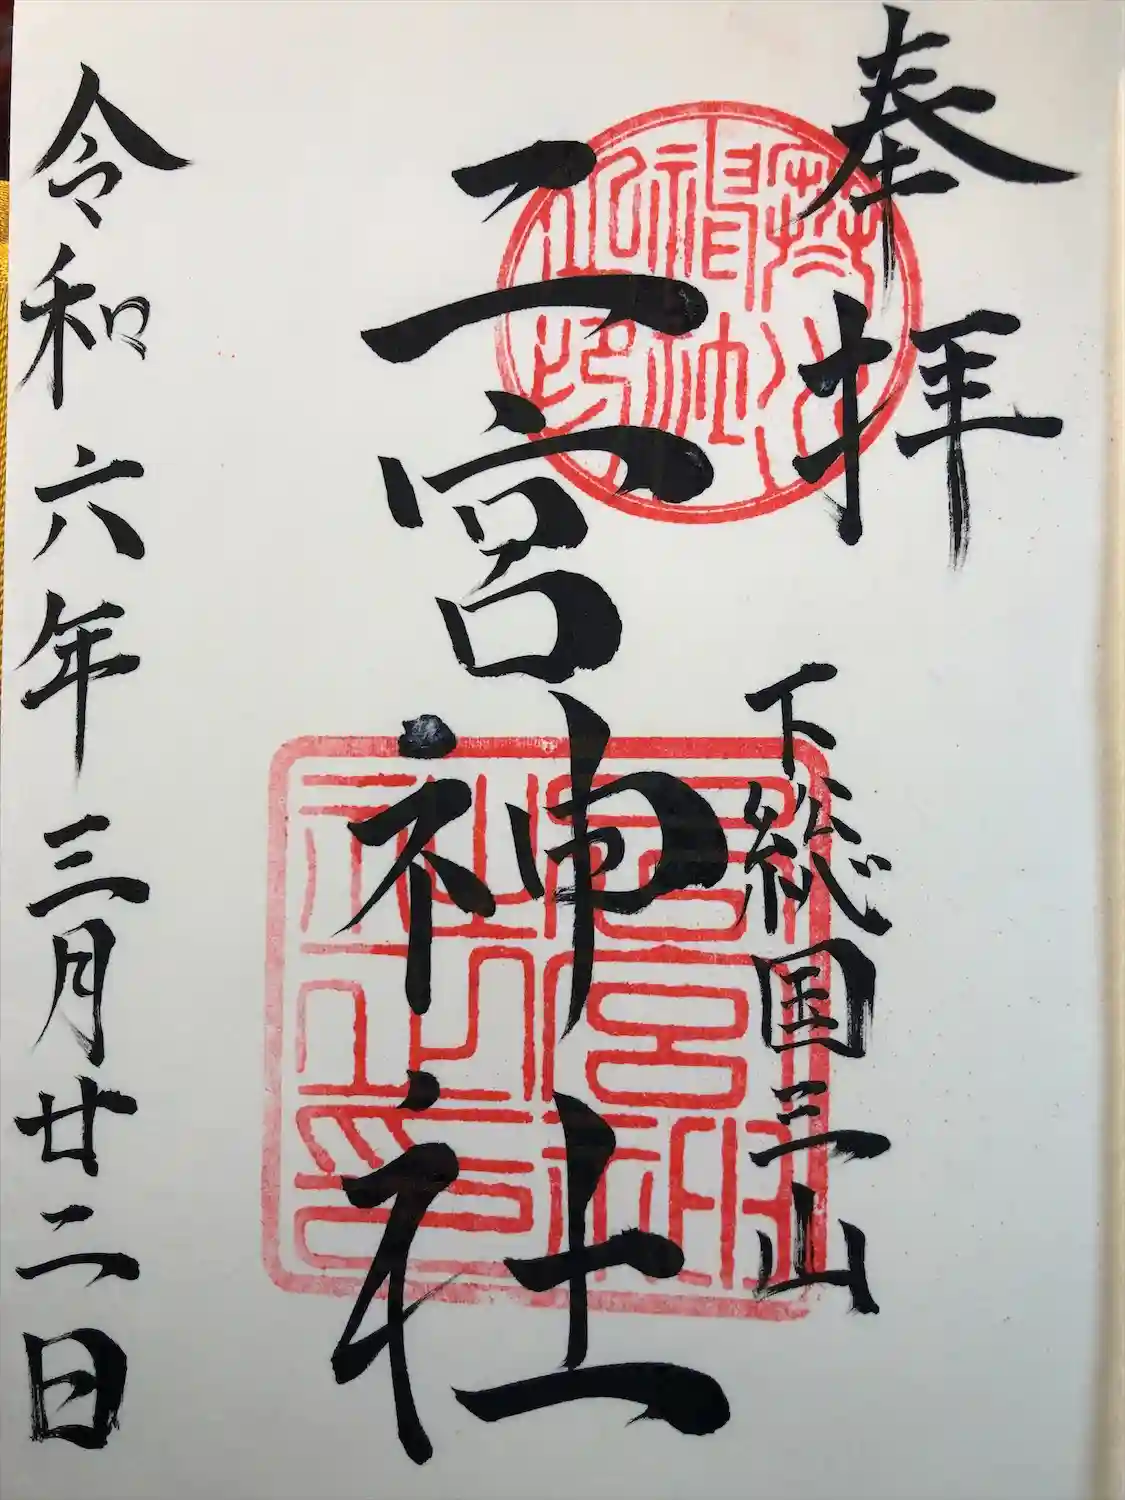 奉拝
下総国三山
二宮神社
令和六年三月廿二日